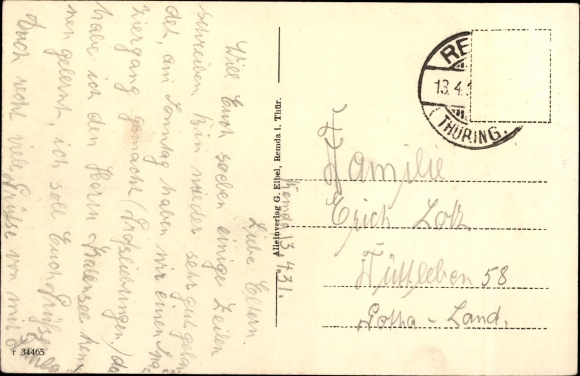 Remda 13.4.31.
Liebe Eltern.
Will Euch soeben einige Zeilen
schreiben, bin wieder sehr gut gelan-
det, am Sonntag haben wir einen Spa-
ziergang gemacht (Großeibungen) da
habe ich den Herrn Kalensee ken-
nen gelernt, ich soll Euch Grüße
Auch recht viele Grüße von mir
Alleinverlag G. Eihel, Remda i. Thür.
RE
13.4.
(THÜRING.)
Familie
Erich Lotz
Tüttleben 58
Gotha - Land.
r 34465